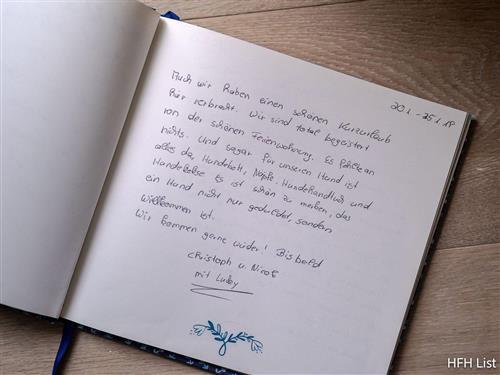 20.1. - 25.1.19
Auch wir haben einen schönen Kurzurlaub
hier verbracht. Wir sind total begeistert
von der schönen Ferienwohnung. Es fehlte an
nichts. Und sogar für unseren Hund ist
alles da, Hundebett, Näpfe, Hundehandtuch und
Hundekekse. Es ist schön zu merken, das
ein Hund nicht nur geduldet, sondern
Willkommen ist.
Wir kommen gerne wieder! Bis bald
Christoph u. Nicole
mit
HFH List